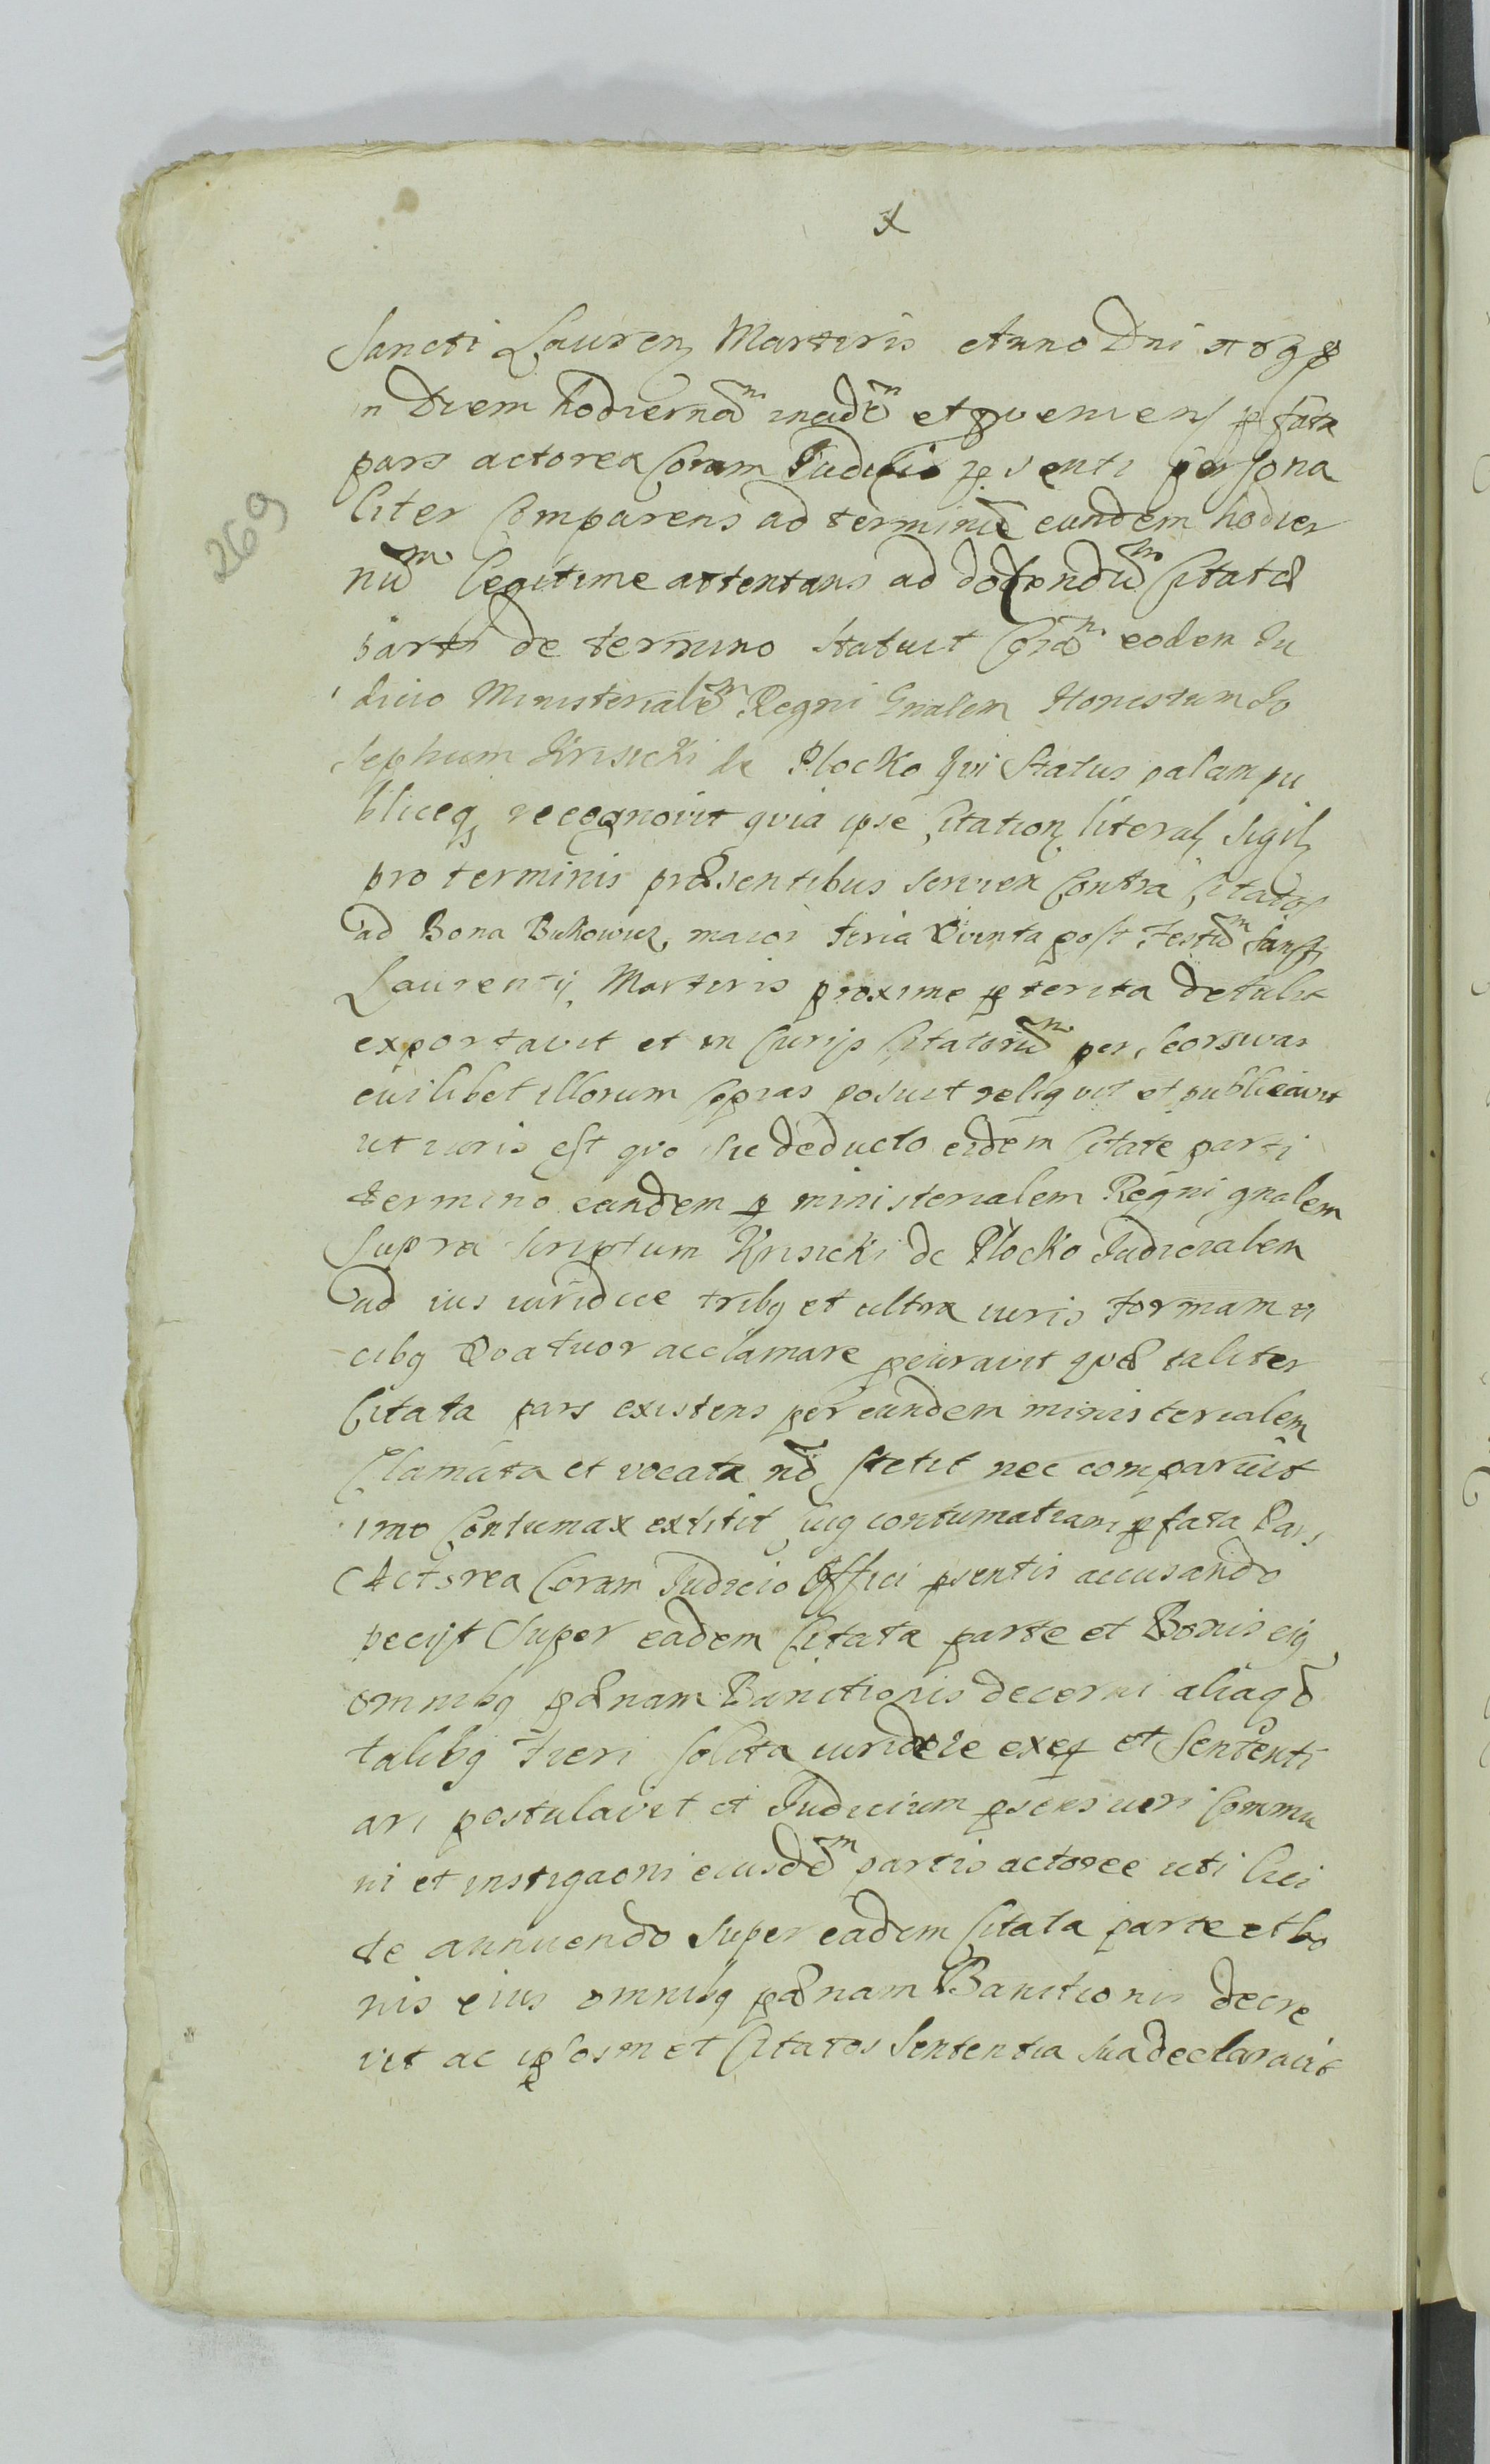 x
Sancti Lauren Martiris Anno Dni
in Diem hodiernam incidem et pveniens pfata
pars actorea Coram Judicio psenti persona
liter Comparens ad terminu eundem hodier
num legitime attentans ad docendum Citatæ
parti de termino statuit Coram eodem Ju
dicio Ministerialem Regni Gnalem Honestum Jo
sephum Krisicki de Plocko qui Status palam pu
bliceq recognovit quia ipse Citation literal Sigil
pro terminis præsentibus servien Contra Citatos
ad Bona Bukowiec maior feria Quinta post Festum Sancti
Laurentij Martiris proxime pterita detulit
exportavit et in Curijs Citatorum per seorsivas
cuilibet illorum Copias posuit reliquit et publicavit
ut iuris est quo sic deducto eidem Citate parti
termino eandem p ministerialem Regni gnalem
supra scriptum Krisicki de Plocko Judicialem
ad ius iuridice tribq et ultra iuris formam vi
cibq Quatuor acclamare pcuravit quæ taliter
Citata pars existens per eundem ministerialem
Clamata et vocata no stetit nec comparuit
imo Contumax extitit cuiq contumatiam pfata Pars
Actorea Coram Judicio Offici psentis accusando
pecijt Super eadem Citata parte et Bonis eiq
omnibq pænam Banitionis decerni aliaq
talibq fieri solita iuridice exeq et Sententi
ari postulavit et Judicium psens iuri Commu
ni et instigaoni eiusdem partis actoree uti lici
te annuendo super eadem Citata parte et bo
nis eius omnibq pænam Banitionis decre
vit ac ipsosmet Citatos Sententia sua declaravit
269